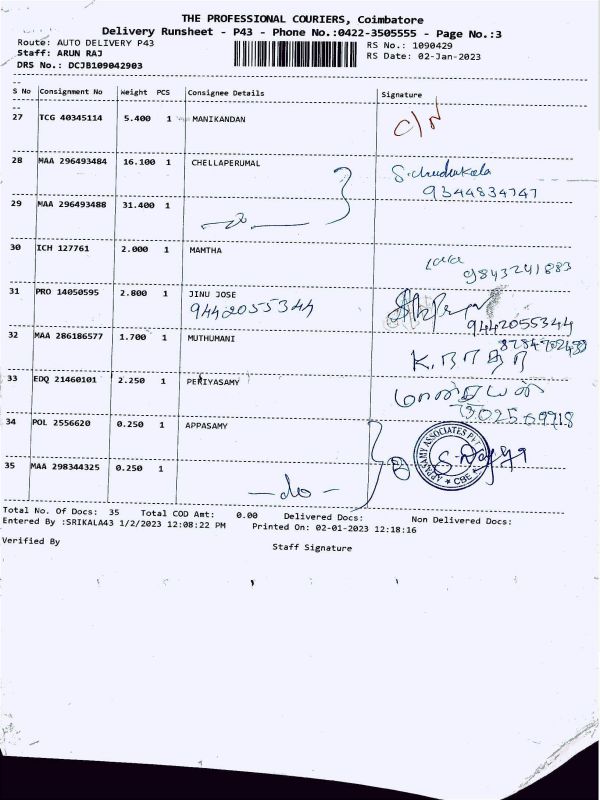 THE PROFESSIONAL COURIERS, Coimbatore
Delivery Runsheet - P43 - Phone No.:0422-3505555 - Page No.:3
Route: AUTO DELIVERY P43 RS No.: 1090429
Staff: ARUN RAJ RS Date: 02-Jan-2023
DRS No.: DCJB109042903
S No Consignment No Weight PCS Consignee Details Signature
27 TCG 40345114 5.400 1 MANIKANDAN C/N
28 MAA 296493484 16.100 1 CHELLAPERUMAL
9344834747
29 MAA 296493488 31.400 1
30 ICH 127761 2.000 1 MAMTHA
9843241883
31 PRO 14050595 2.800 1 JINU JOSE
9442055344 9442055344
32 MAA 286186577 1.700 1 MUTHUMANI
33 EDQ 21460101 2.250 1 PERIYASAMY
34 POL 2556620 0.250 1 APPASAMY
APPASAMY ASSOCIATES PVT * CBE *
35 MAA 298344325 0.250 1
— do —
Total No. Of Docs: 35 Total COD Amt: 0.00 Delivered Docs: Non Delivered Docs:
Entered By :SRIKALA43 1/2/2023 12:08:22 PM Printed On: 02-01-2023 12:18:16
Verified By Staff Signature